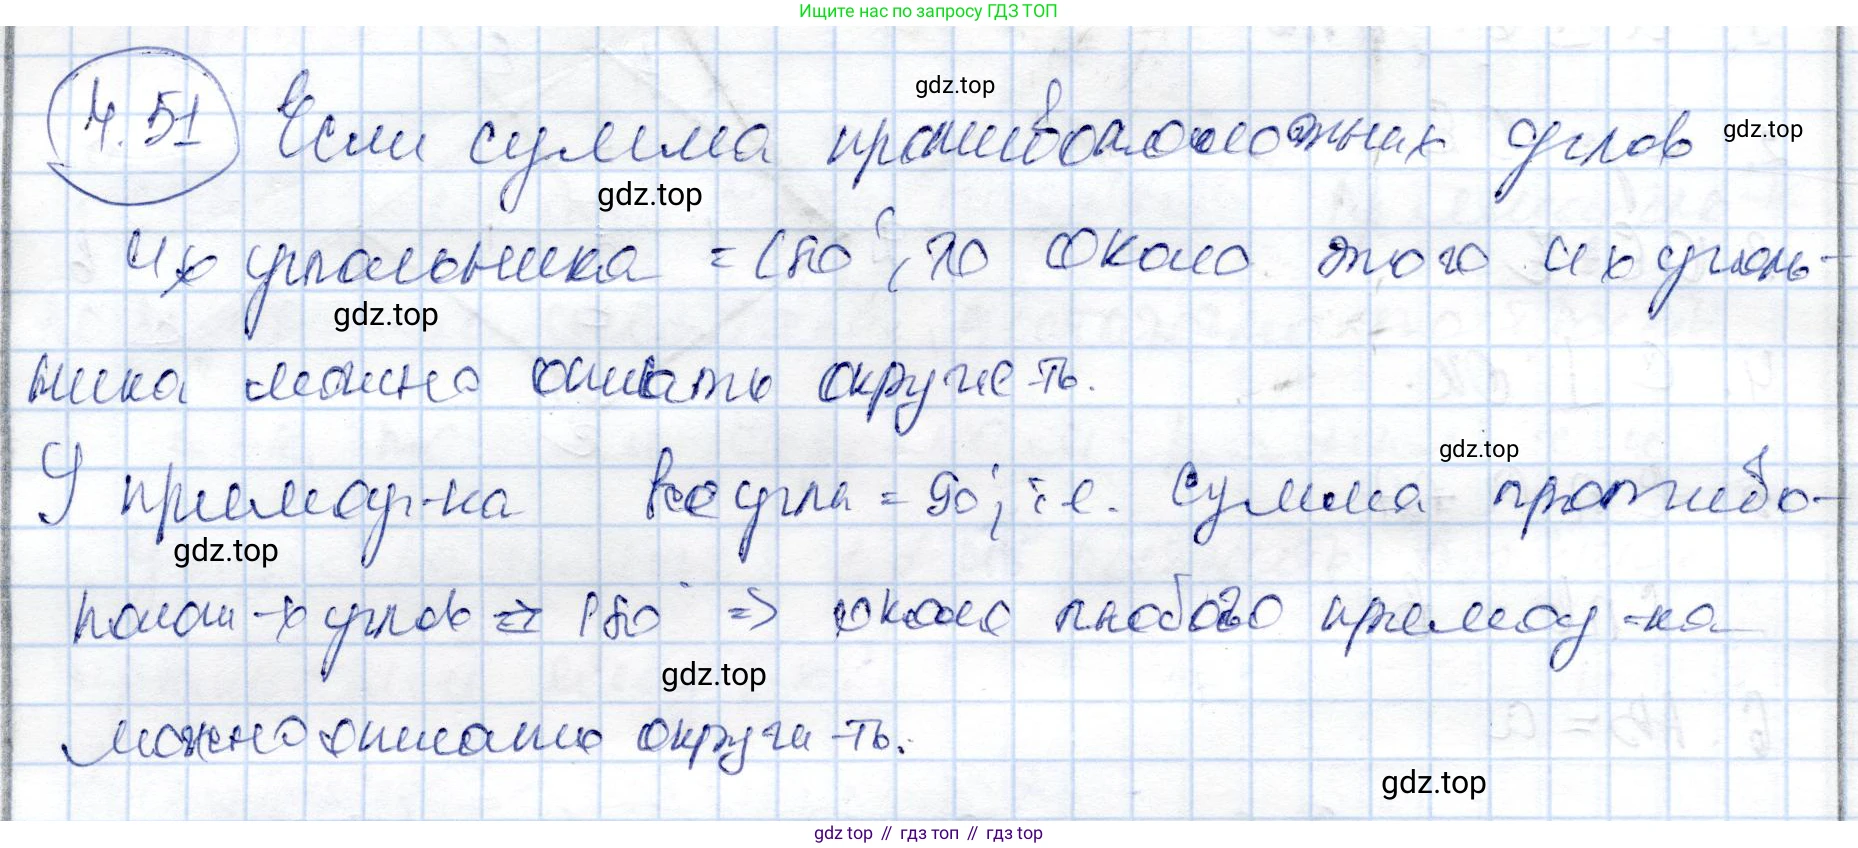 Ищите нас по запросу ГДЗ ТОП
4.51 Если сумма противоположных углов
gdz.top
gdz.top
gdz.top
4х угольника = 180°, то около этого 4х уголь-
gdz.top
ника можно описать окружн-ть.
gdz.top
У прямоуг-ка все углы = 90°, т.е. сумма противо-
gdz.top
полож-х углов = 180° => около любого прямоуг-ка
gdz.top
можно описать окружн-ть.
gdz.top
gdz top // гдз топ // гдз top